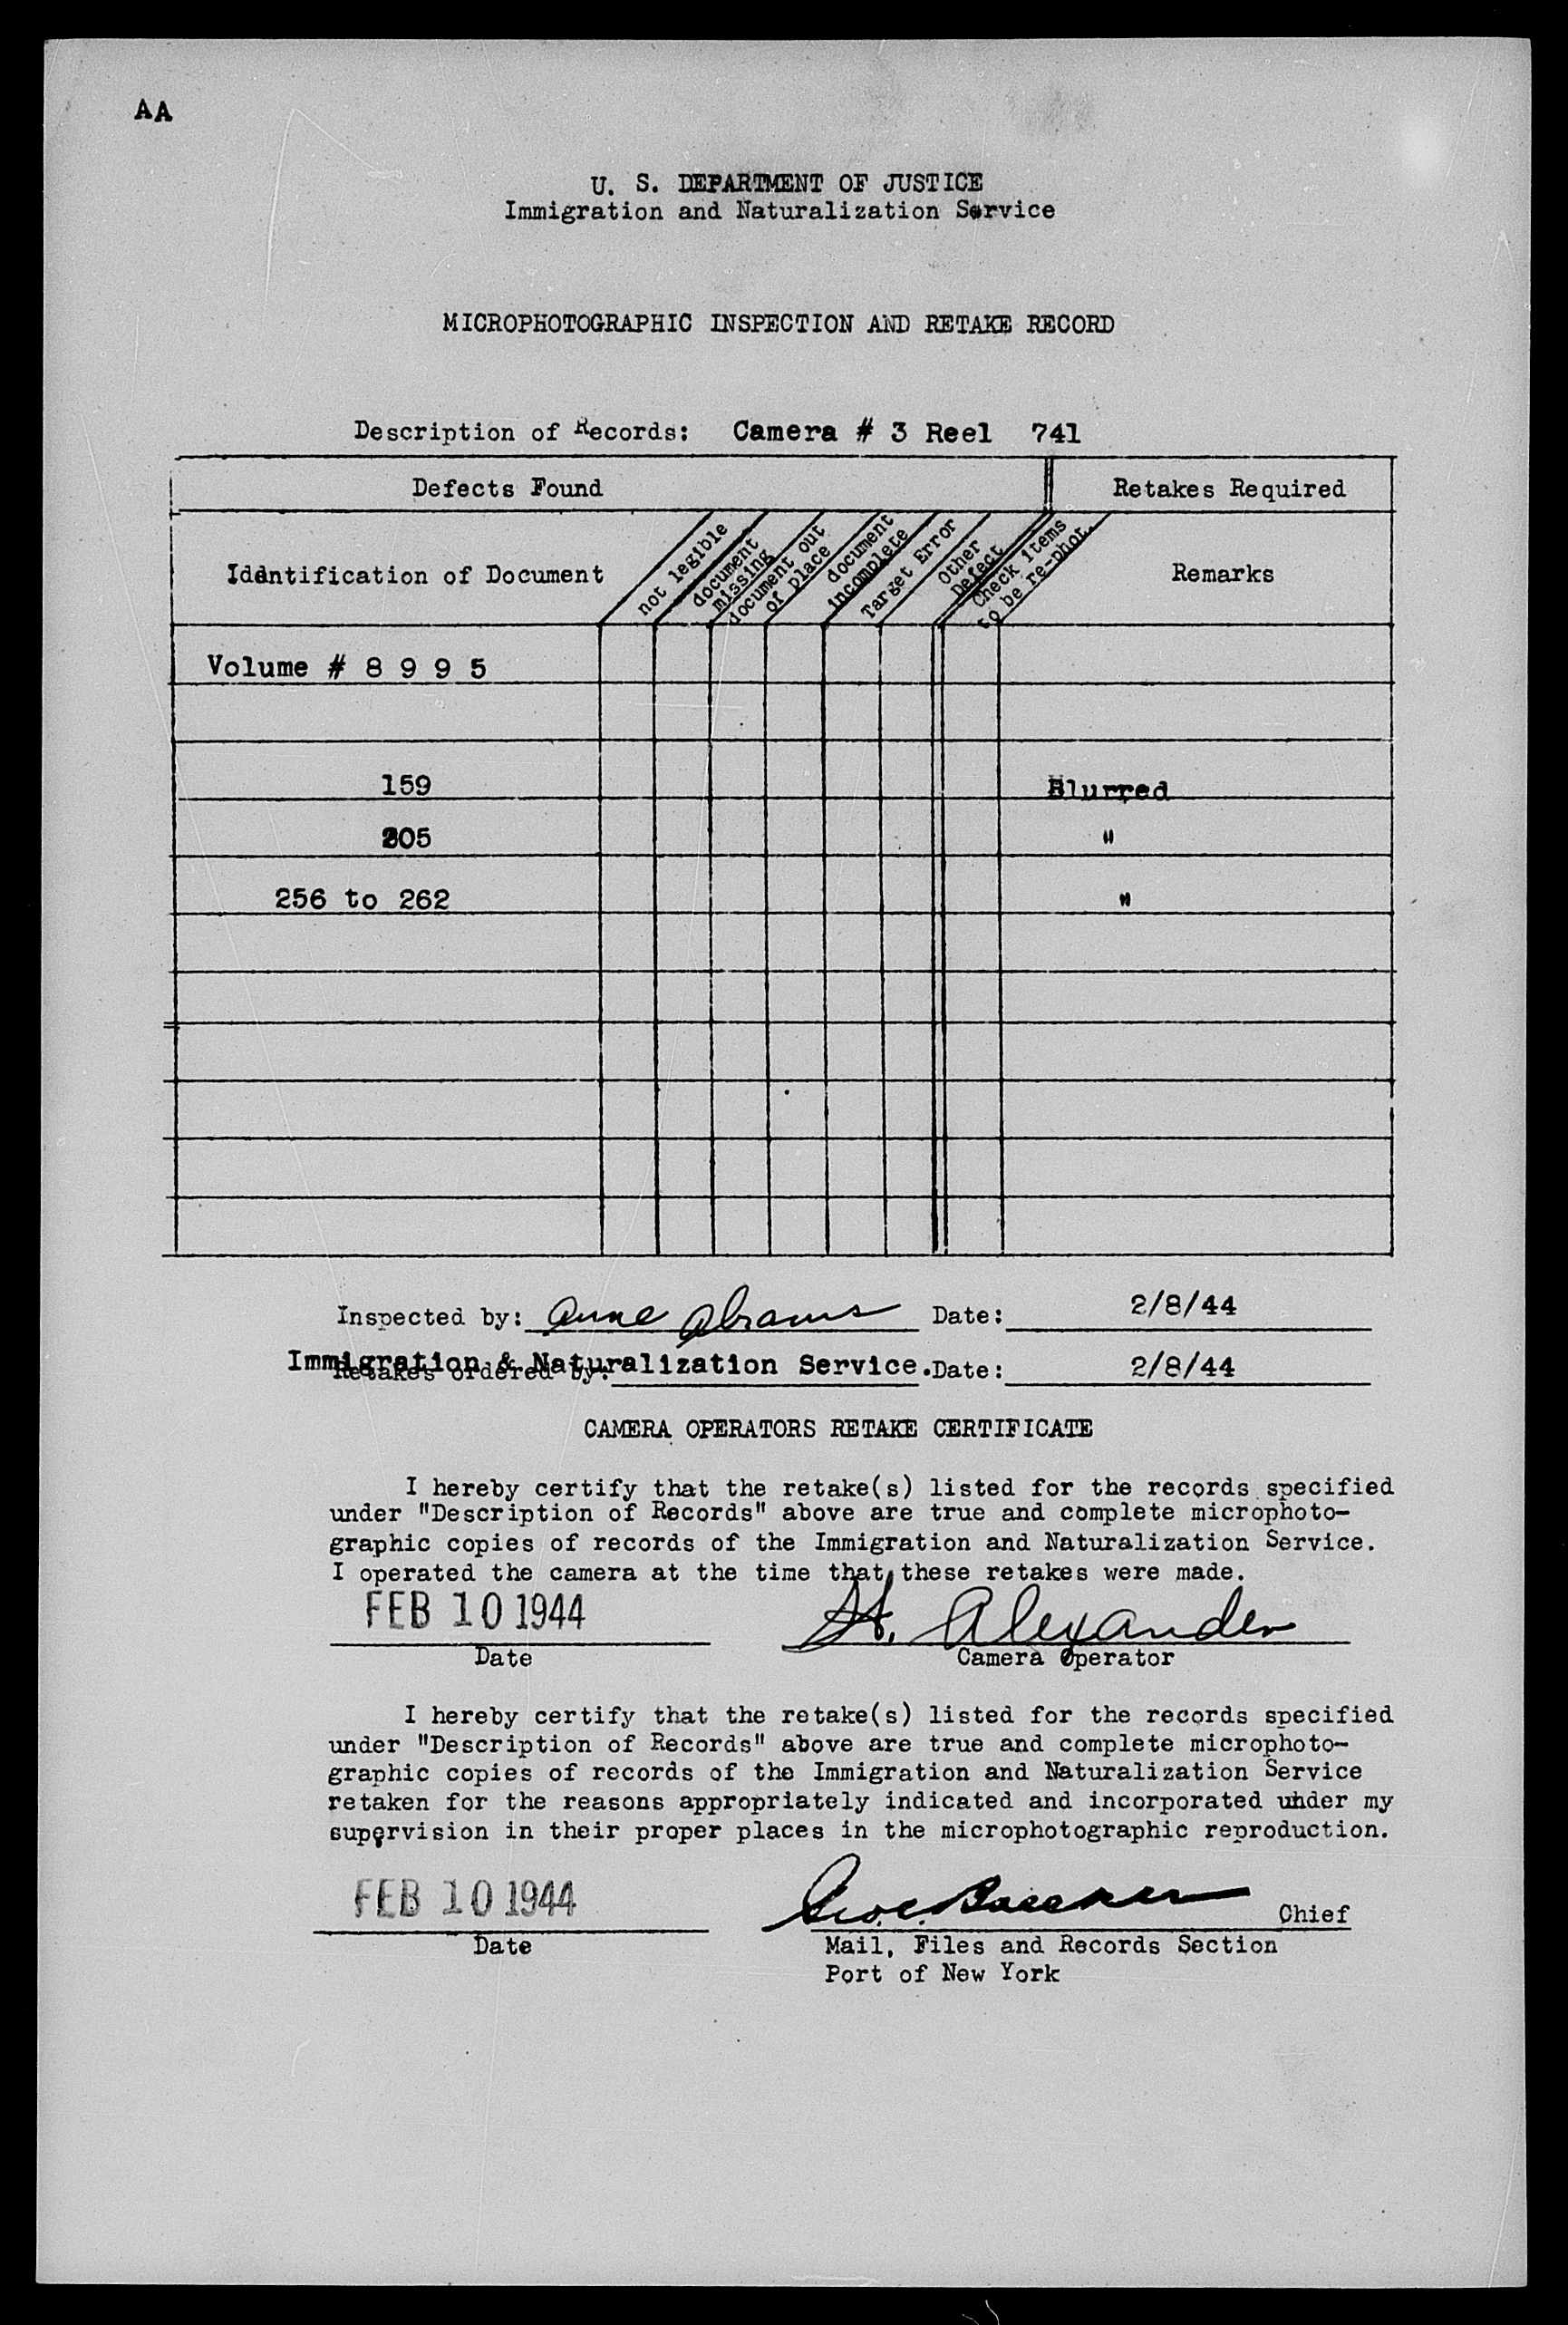 AA
U. S. DEPARTMENT OF JUSTICE
Immigration and Naturalization Service
MICROPHOTOGRAPHIC INSPECTION AND RETAKE RECORD
Description of Records: Camera # 3 Reel 741
Defects Found
Retakes Required
Identification of Document
not legible
document missing
document out of place
document incomplete
Target Error
Other Defect
Check items to be re-phot.
Remarks
Volume # 8 9 9 5
159 Blurred
205 "
256 to 262 "
Inspected by: Anne Abrams Date: 2/8/44
Immigration & Naturalization Service.
Retakes ordered by: Date: 2/8/44
CAMERA OPERATORS RETAKE CERTIFICATE
I hereby certify that the retake(s) listed for the records specified
under "Description of Records" above are true and complete microphoto-
graphic copies of records of the Immigration and Naturalization Service.
I operated the camera at the time that these retakes were made.
FEB 10 1944 H. Alexander
Date Camera Operator
I hereby certify that the retake(s) listed for the records specified
under "Description of Records" above are true and complete microphoto-
graphic copies of records of the Immigration and Naturalization Service
retaken for the reasons appropriately indicated and incorporated under my
supervision in their proper places in the microphotographic reproduction.
FEB 10 1944 Chief
Date Mail, Files and Records Section
Port of New York